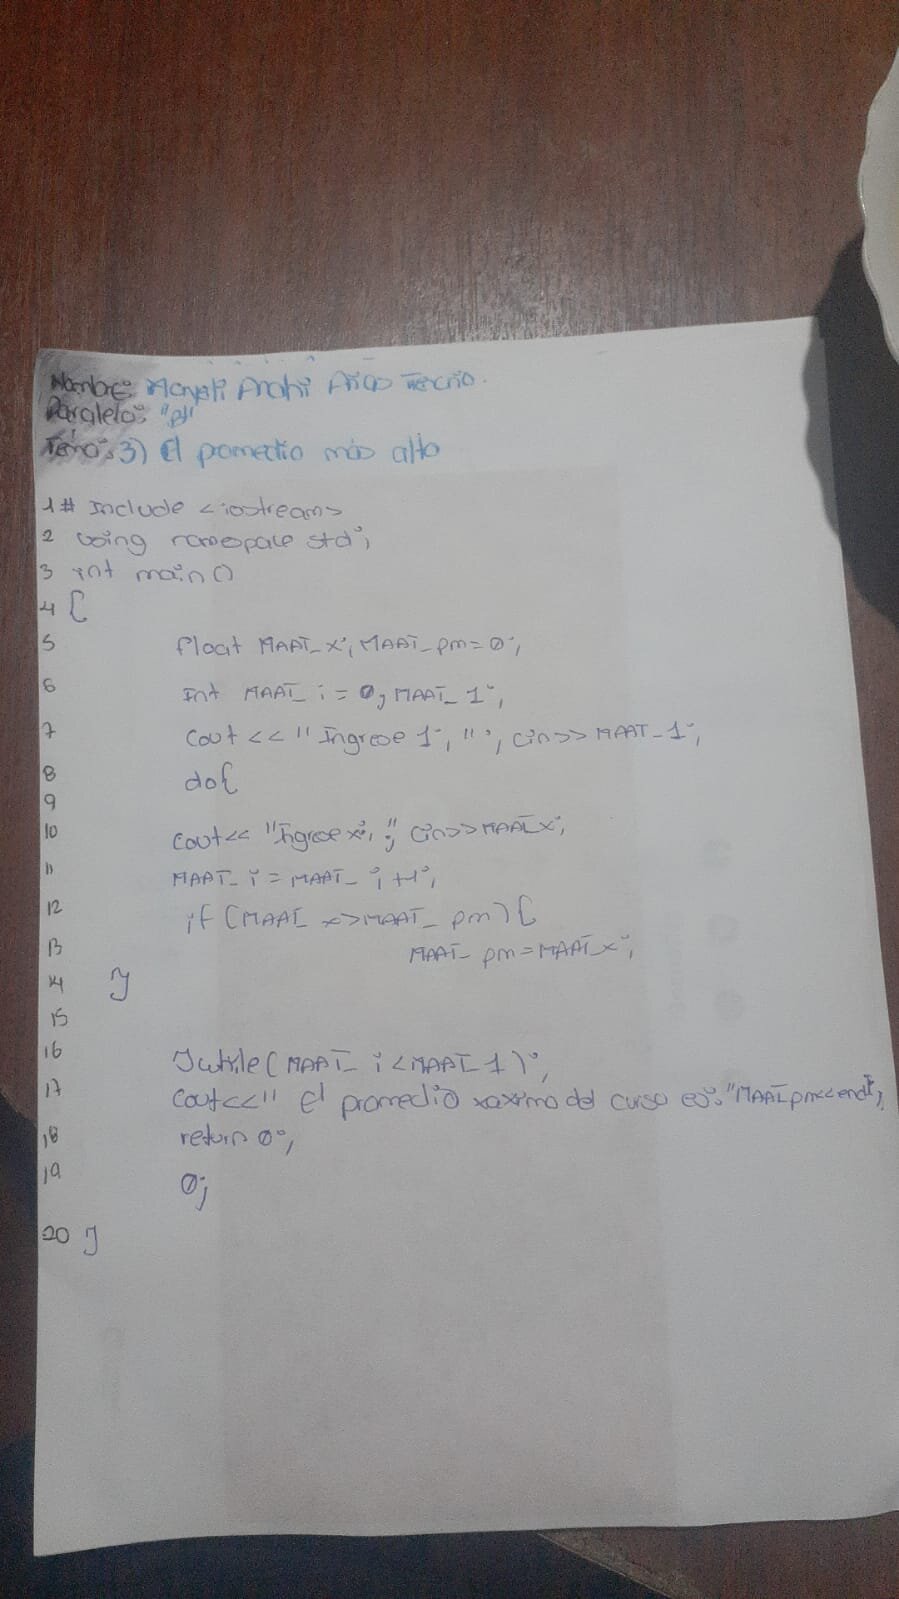 Nombre: Mayeli Anahi Arias Tenorio.
Paralelo: "A"
Tema: 3) El pomedio más alto
1 # Include <iostream>
2 using namespace std;
3 int main()
4 {
5 float MAAT_x; MAAT_pm=0;
6 Int MAAT_i=0, MAAT_1;
7 Cout<<"Ingrese 1; "; cin>>MAAT_1;
8 do{
9
10 cout<< "Ingrese x; "; cin>>MAAT_x;
11 MAAT_i = MAAT_i+1;
12 if (MAAT_x>MAAT_pm){
13 MAAT_pm=MAAT_x;
14 }
15
16 }while(MAAT_i<MAAT_1);
17 Cout<<" El promedio xaximo del curso es: "MAAT_pm<<endl;
18 return 0;
19 0;
20 }